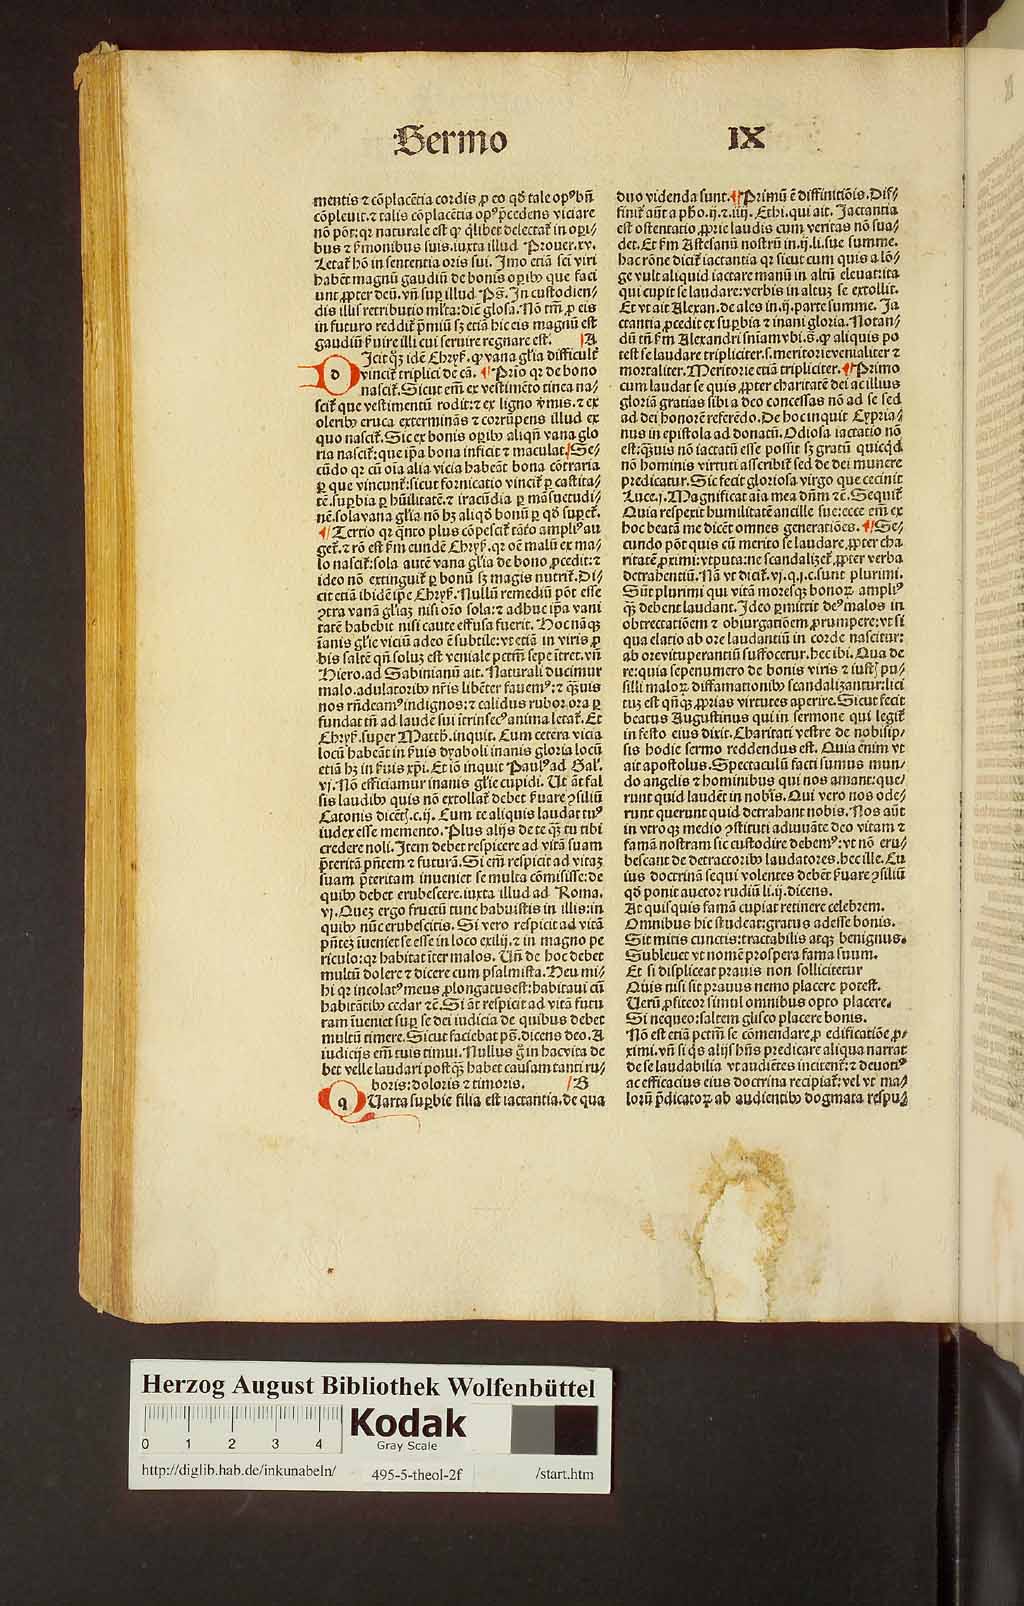 Sermo IX
mentis ⁊ cōplacētia cordis ꝓ eo qđ tale opꝰ bñ
cōpleuit. ⁊ talis cōplacētia opꝰ p̄cedens viciare
nō pōt: qꝛ naturale est ꝙ qͥlibet delectat᷑ in oꝑi/
bus ⁊ ẜmonibus suis. iuxta illud Prouer. xv.
Letat᷑ hō in sententia oris sui. Imo etiā sci viri
habēt magnū gaudiū de bonis oꝑibꝫ que faci
unt ꝓpter deū. vñ suꝑ illud Ps̄. In custodien/
dis illis retributio ml̓ta: dic̄ glosa. Nō tm̄ ꝓ eis
in futuro reddit᷑ p̄miū sꝫ etiā hic eis magnū est
gaudiū ẜuire illi cui seruire regnare est. A
d Icit qͦꝫ idē Chryſ. ꝙ vana gl̓ia difficulť
vincit᷑ triplici de cā. ¶ Prīo qꝛ de bono
nascit᷑. Sicut em̄ ex vestimēto tinea na/
scit᷑ que vestimentū rodit: ⁊ ex ligno v̓mis. ⁊ ex
oleribꝫ eruca exterminās ⁊ corrūpens illud ex
quo nascit᷑. Sic ex bonis oꝑibꝫ aliqñ vana glo
ria nascit᷑: que ip̄a bona inficit ⁊ maculat. Se/
cūdo qꝛ cū oīa alia vicia habeāt bona cōtraria
ꝑ que vincunt᷑: sicut fornicatio vincit᷑ ꝑ castita/
tē. suꝑbia ꝑ hūilitatē. ⁊ iracūdia ꝑ māsuetudi/
nē. sola vana gl̓ia nō hꝫ aliqđ bonū ꝑ qđ suꝑet᷑.
¶ Tertio qꝛ qͣnto plus cōpescit᷑ tāto ampliꝰ au
get᷑. ⁊ rō est ẜm eundē Chryſ. qꝛ oē malū ex ma/
lo nascit᷑: sola autē vana gl̓ia de bono ꝓcedit: ⁊
ideo nō extinguit᷑ ꝑ bonū sꝫ magis nutrit᷑. Di/
cit etiā ibidē ip̄e Chryſ. Nullū remediū pōt esse
ꝯtra vanā gl̓iaꝫ nisi oīo sola: ⁊ adhuc ip̄a vani
tatē habebit nisi caute effusa fuerit. Hoc nāqꝫ
īanis gl̓ie viciū adeo ē subtile: vt etiā in viris ꝑ
bis saltē qñ soluꝫ est veniale pctm̄ sepe ītret. vñ
Hiero. ad Sabinianū ait. Naturali ducimur
malo. adulatoribꝫ nr̄is libēter fauemꝰ: ⁊ qͣꝫuis
nos rñdeamꝰ indignos: ⁊ calidus rubor ora ꝑ
fundat tñ ad laudē sui ītrinsecꝰ anima letat᷑. Et
Chryſ. super Matth. inquit. Cum cetera vicia
locū habeāt in ẜuis dyaboli inanis gloria locū
etiā hꝫ in ẜuis xp̄i. Et iō inquit Paulꝰ ad Gal̓.
vj. Nō efficiamur inanis gl̓ie cupidi. Ut āt fal
sis laudibꝫ quis nō extollat᷑ debet ẜuare ꝯsiliū
Catonis dicēt̄. c. ij. Cum te aliquis laudat tuꝰ
iudex esse memento. Plus alijs de te qͣꝫ tu tibi
credere noli. Item debet respicere ad vitā suam
p̄teritā p̄ñtem ⁊ futurā. Si em̄ respicit ad vitaꝫ
suam p̄teritam inueniet se multa cōmisisse: de
quibꝫ debet erubescere. iuxta illud ad Roma.
vj. Queꝫ ergo fructū tunc habuistis in illis: in
quibꝫ nūc erubescitis. Si vero respicit ad vitā
p̄ñteꝫ īueniet se esse in loco exilij. ⁊ in magno pe
riculo: qꝛ habitat īter malos. Uñ de hoc debet
multū dolere ⁊ dicere cum psalmista. Heu mi/
hi qꝛ incolatꝰ meus ꝓlongatus est: habitaui cū
habitātibꝫ cedar ⁊c̄. Si āt respicit ad vitā futu
ram īueniet suꝑ se dei iudicia de quibus debet
multū timere. Sicut faciebat ps̄. dicens deo. A
iudicijs em̄ tuis timui. Nullus g̊ in hac vita de
bet velle laudari postqͣꝫ habet causam tanti ru/
boris: doloris ⁊ timoris. B
q Uarta suꝑbie filia est iactantia. de qua
duo videnda sunt. ¶ Primū ē diffinitiōis. Dif/
finit᷑ aūt a pħo. ij. ⁊. iiij. Ethi. qui ait. Jactantia
est ostentatio ꝓprie laudis cum veritas nō sua/
det. Et ẜm Astesanū nostrū in. ij. li. sue summe.
hac rōne dicit᷑ iactantia qꝛ sicut cum quis a lō/
ge vult aliquid iactare manū in altū eleuat: ita
qui cupit se laudare: verbis in altuꝫ se extollit.
Et vt ait Alexan. de ales in. ij. parte summe. Ja
ctantia ꝓcedit ex suꝑbia ⁊ inani gloria. Notan/
dū tñ ẜm Alexandri sniam vbi. s̄. ꝙ aliquis po
test se laudare tripliciter. s. meritorie venialiter ⁊
mortaliter. Meritorie etiā tripliciter. ¶ Primo
cum laudat se quis ꝓpter charitatē dei ac illius
gloriā gratias sibi a deo concessas nō ad se sed
ad dei honorē referēdo. De hoc inquit Cypria/
nus in epistola ad donatū. Odiosa iactatio nō
est: qͣꝫuis nō iactatū esse possit sꝫ gratū quicqͥd
nō hominis virtuti asscribit᷑ sed de dei munere
predicatur. Sic fecit gloriosa virgo que cecinit
Luce. j. Magnificat aīa mea dñm ⁊c̄. Sequit᷑
Quia respexit humilitatē ancille sue: ecce em̄ ex
hoc beatā me dicēt omnes generatiōes. ¶ Se/
cundo pōt quis cū merito se laudare ꝓpter cha
ritatē ꝓximi: vtputa: ne scandalizet᷑ ꝓpter verba
detrahentiū. Nā vt dicit᷑. vj. q. j. c. sunt plurimi.
Sūt plurimi qui vitā moresqꝫ bonoꝝ ampliꝰ
qͣꝫ debent laudant. Ideo ꝑmittit deꝰ malos in
obtrectatiōem ⁊ obiurgatiōem ꝓrumpere: vt si
qua elatio ab ore laudantiū in corde nascitur:
ab ore vituperantiū suffocetur. hec ibi. Qua de
re: quia sepenumero de bonis viris ⁊ iust̄ pu/
silli maloꝝ diffamationibꝫ scandalizantur: lici
tuꝫ est qñqꝫ ꝓprias virtutes aperire. Sicut fecit
beatus Augustinus qui in sermone qui legit᷑
in festo eius dixit. Charitati vestre de nobisip/
sis hodie sermo reddendus est. Quia enim vt
ait apostolus. Spectaculū facti sumus mun/
do angelis ⁊ hominibus qui nos amant: que/
runt quid laudēt in nobis. Qui vero nos ode/
runt querunt quid detrahant nobis. Nos aūt
in vtroqꝫ medio ꝯstituti adiuuāte deo vitam ⁊
famā nostram sic custodire debemꝰ: vt nō eru/
bescant de detractoribꝫ laudatores. hec ille. Cu
ius doctrinā sequi volentes debēt ẜuare ꝯsiliū
qđ ponit auctor rudiū li. ij. dicens.
At quisquis famā cupiat retinere celebrem.
Omnibus hic studeat: gratus adesse bonis.
Sit mitis cunctis: tractabilis atqꝫ benignus.
Subleuet vt nomē prospera fama suum.
Et si displiceat prauis non sollicitetur
Quis nisi sit prauus nemo placere potest.
Uerū ꝓfiteor simul omnibus opto placere.
Si nequeo: saltem glisco placere bonis.
Nō est etiā pctm̄ se cōmendare ꝓ edificatiōe ꝓ/
ximi. vñ si qͥs alijs hñs predicare aliqua narrat
de se laudabilia vt audiētes incitent᷑: ⁊ deuotiꝰ
ac efficacius eius doctrina recipiat᷑: vel vt ma/
lorū p̄dicatoꝝ ab audientibꝫ dogmata respu/
Herzog August Bibliothek Wolfenbüttel
0 1 2 3 4
Kodak
Gray Scale
http://diglib.hab.de/inkunabeln/ 495-5-theol-2f /start.htm